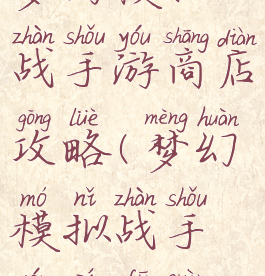 zhàn shǒu yóu shāng diàn
战手游商店
gōng lüè mèng huàn
攻略(梦幻
mó nǐ zhàn shǒu
模拟战手